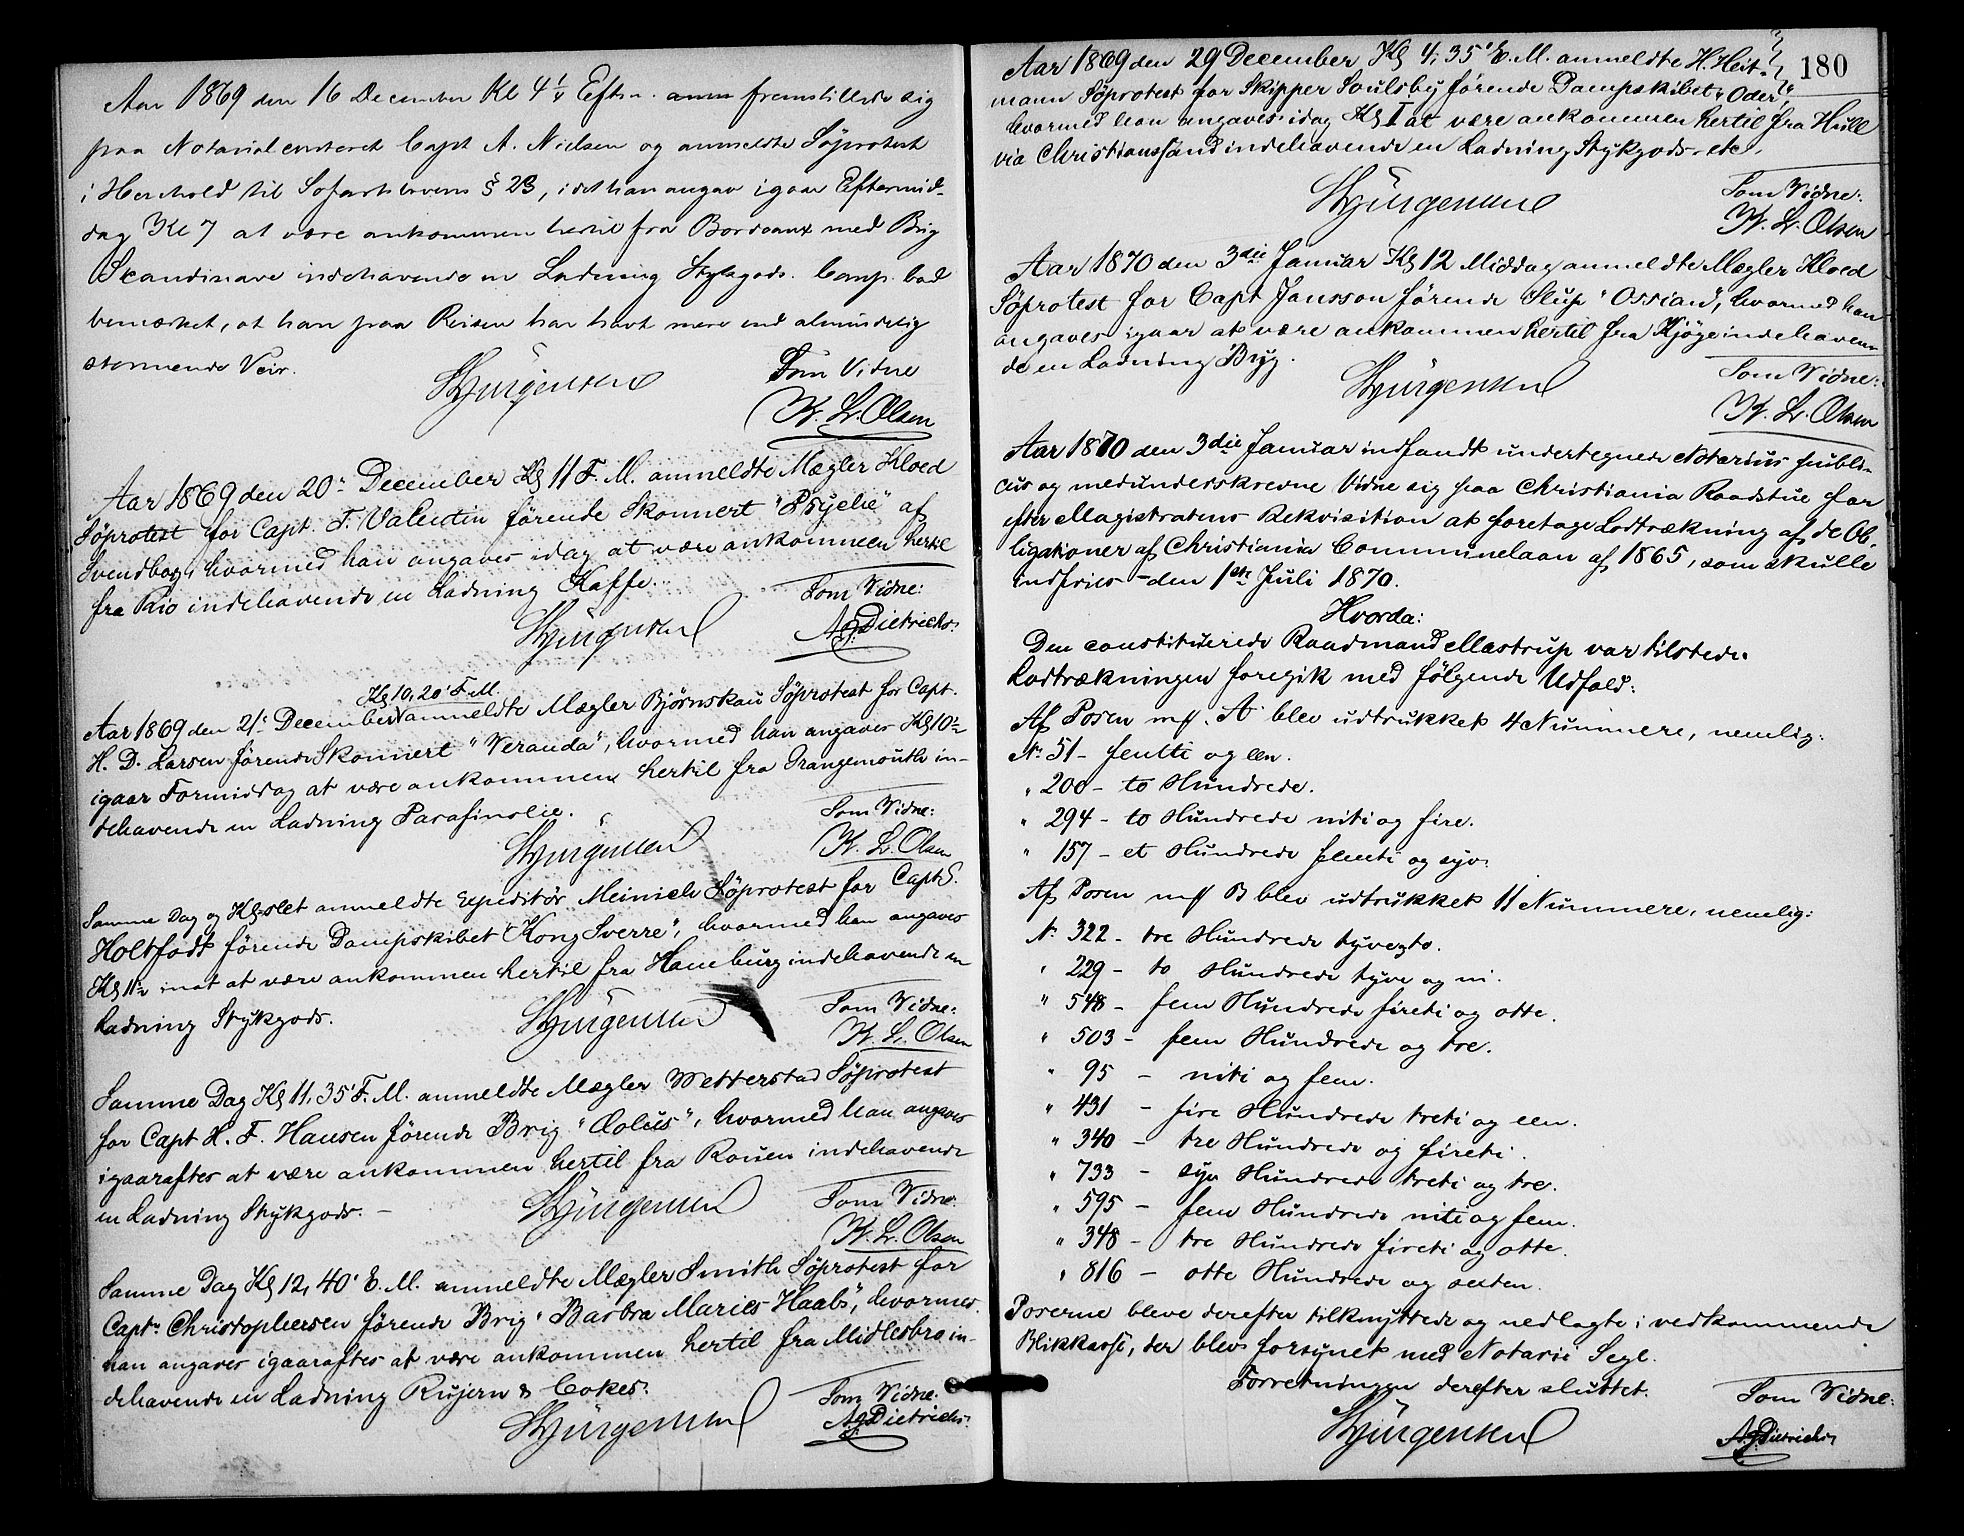 Aar 1869 den 16 December Kl 4 1/4 Eftm. anm fremstillede sig
paa Notarialcontoret Capt A. Nielsen og anmeldte Söprotest
i Henhold til Sofartslovens § 23, idet han angav igaar Eftermid-
dag Kl 7 at være ankommen hertil fra Bordeaux med Brig
Skandinave indehavende en Ladning Stykgods. Comp. bad
bemærket, at han paa Reisen har havt mere end almindelig
stormende Veir.
Som Vidne
SHjürgensen
K. L. Olsen
Aar 1869 den 20de December Kl 11 F. M. anmeldte Mægler Kloed
Söprotest for Capt. F. Valentin förende Skonnert "Psyche" af
Svendborg, hvormed han angaves idag at være ankommen hertil
fra Rio indehavende en Ladning Kaffe.
Som Vidne:
SHjürgensen
A. Dietrichs.
Kl 10,20' F. M.
Aar 1869 den 21de December anmeldte Mægler Björnskau Söprotest for Capt.
H. D. Larsen förende Skonnert "Veranda", hvormed han angaves Kl 10 1/2
igaar Formiddag at være ankommen hertil fra Grangemouth in-
dehavende en Ladning Parafinolie.
Som Vidne:
SHjürgensen
K. L. Olsen
Samme Dag og Kl-slet anmeldte Expeditör Meinich Söprotest for Capt S.
Holtfodt förende Dampskibet "Kong Sverre", hvormed han angaves
Kl 11 1/2 inat at være ankommen hertil fra Hamburg indehavende en
Ladning Stykgods.
Som Vidne:
SHjürgensen
K. L. Olsen
Samme Dag Kl 11,35' F. M. anmeldte Mægler Wetterstad Söprotest
for Capt H. F. Hansen förende Brig "Æolus", hvormed han angaves
igaaraftes at være ankommen hertil fra Rouen indehavende
en Ladning Stykgods. –
Som Vidne:
SHjürgensen
K. L. Olsen
Samme Dag Kl 12,40' E. M. anmeldte Mægler Smith Söprotest for
Captn Christophersen förende Brig "Barbra Maries Haab", hvormed
han angaves igaaraftes at være ankommen hertil fra Midlesbro in-
dehavende en Ladning Rujern & Cokes.
Som Vidne:
SHjürgensen
A. Dietrichs.
180
Aar 1869 den 29 December Kl 4,35' E. M. anmeldte H. Heit-
mann Söprotest for Skipper Soulsby förende Dampskibet "Oder",
hvormed han angaves idag Kl 1 at være ankommen hertil fra Hull
via Christianssand indehavende en Ladning Stykgods etc.
Som Vidne:
SHjürgensen
K. L. Olsen
Aar 1870 den 3die Januar Kl 12 Middag anmeldte Mægler Kloed
Söprotest for Capt Jansson förende Slup "Ossian", hvormed han
angaves igaar at være ankommen hertil fra Kjöge indehaven-
de en Ladning Byg.
Som Vidne:
SHjürgensen
K. L. Olsen
Aar 1870 den 3die Januar indfandt undertegnede Notarius publi-
cus og medunderskrevne Vidne sig paa Christiania Raadstue for
efter Magistratens Rekvisition at foretage Lodtrækning af de Ob-
ligationer af Christiania Communelaan af 1865, som skulle
indfries den 1ste Juli 1870.
Hvorda:
Den constituerede Raadmand Mastrup var tilstede.
Lodtrækningen foregik med fölgende Udfald:
Af Posen mrk. A blev udtrukket 4 Nummere, nemlig:
No 51 – femti og een.
" 200 – to Hundrede.
" 294 – to Hundrede niti og fire.
" 157 – et Hundrede femti og syv.
Af Posen mrk B blev udtrukket 11 Nummere, nemlig:
No 322 – tre Hundrede tyveogto.
" 229 – to Hundrede tyve og ni.
" 548 – fem Hundrede fireti og otte.
" 503 – fem Hundrede og tre.
" 95 – niti og fem.
" 431 – fire Hundrede treti og een.
" 340 – tre Hundrede og fireti.
" 733 – syv Hundrede treti og tre.
" 595 – fem Hundrede niti og fem.
" 348 – tre Hundrede fireti og otte.
" 816 – otte Hundrede og sexten.
Poserne bleve derefter tilknyttede og nedlagte i vedkommende
Blikkasse, der blev forsynet med Notarii Segl.
Forretningen derefter sluttet.
Som Vidne:
SHjürgensen
A. Dietrichs